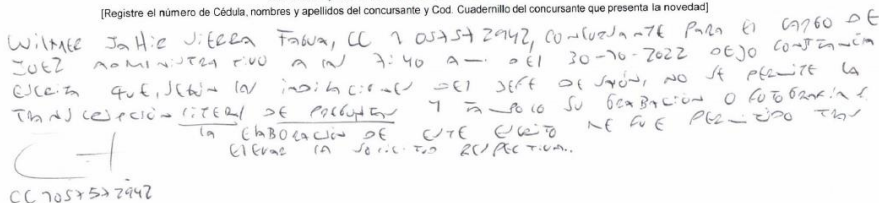 [Registre el número de Cédula, nombres y apellidos del concursante y Cod. Cuadernillo del concursante que presenta la novedad]
WILMER JaHir SIERRA Fagua, CC 1057572942, CONCURSANTE PARA El CARGO DE
JUEZ ADMINISTRATIVO A lAS 7:40 Am DEl 30-10-2022 DEJO CONSTANCIA
ESCRITA QUE, SEGÚN las indicaciones DEl JEFE DE SALÓN, NO SE PERMITE la
TRANSCRIPCIÓN lITERAl DE PREGUNTAS Y TAmpoco SU GRABACIÓN O FOTOGRAFIAS.
la ElABORACIÓN DE ESTE ESCRITO ME FUE PERmITIDO TRAS
ElEVAR lA SOlICITUD RESPECTIVA.
CC 1057572942